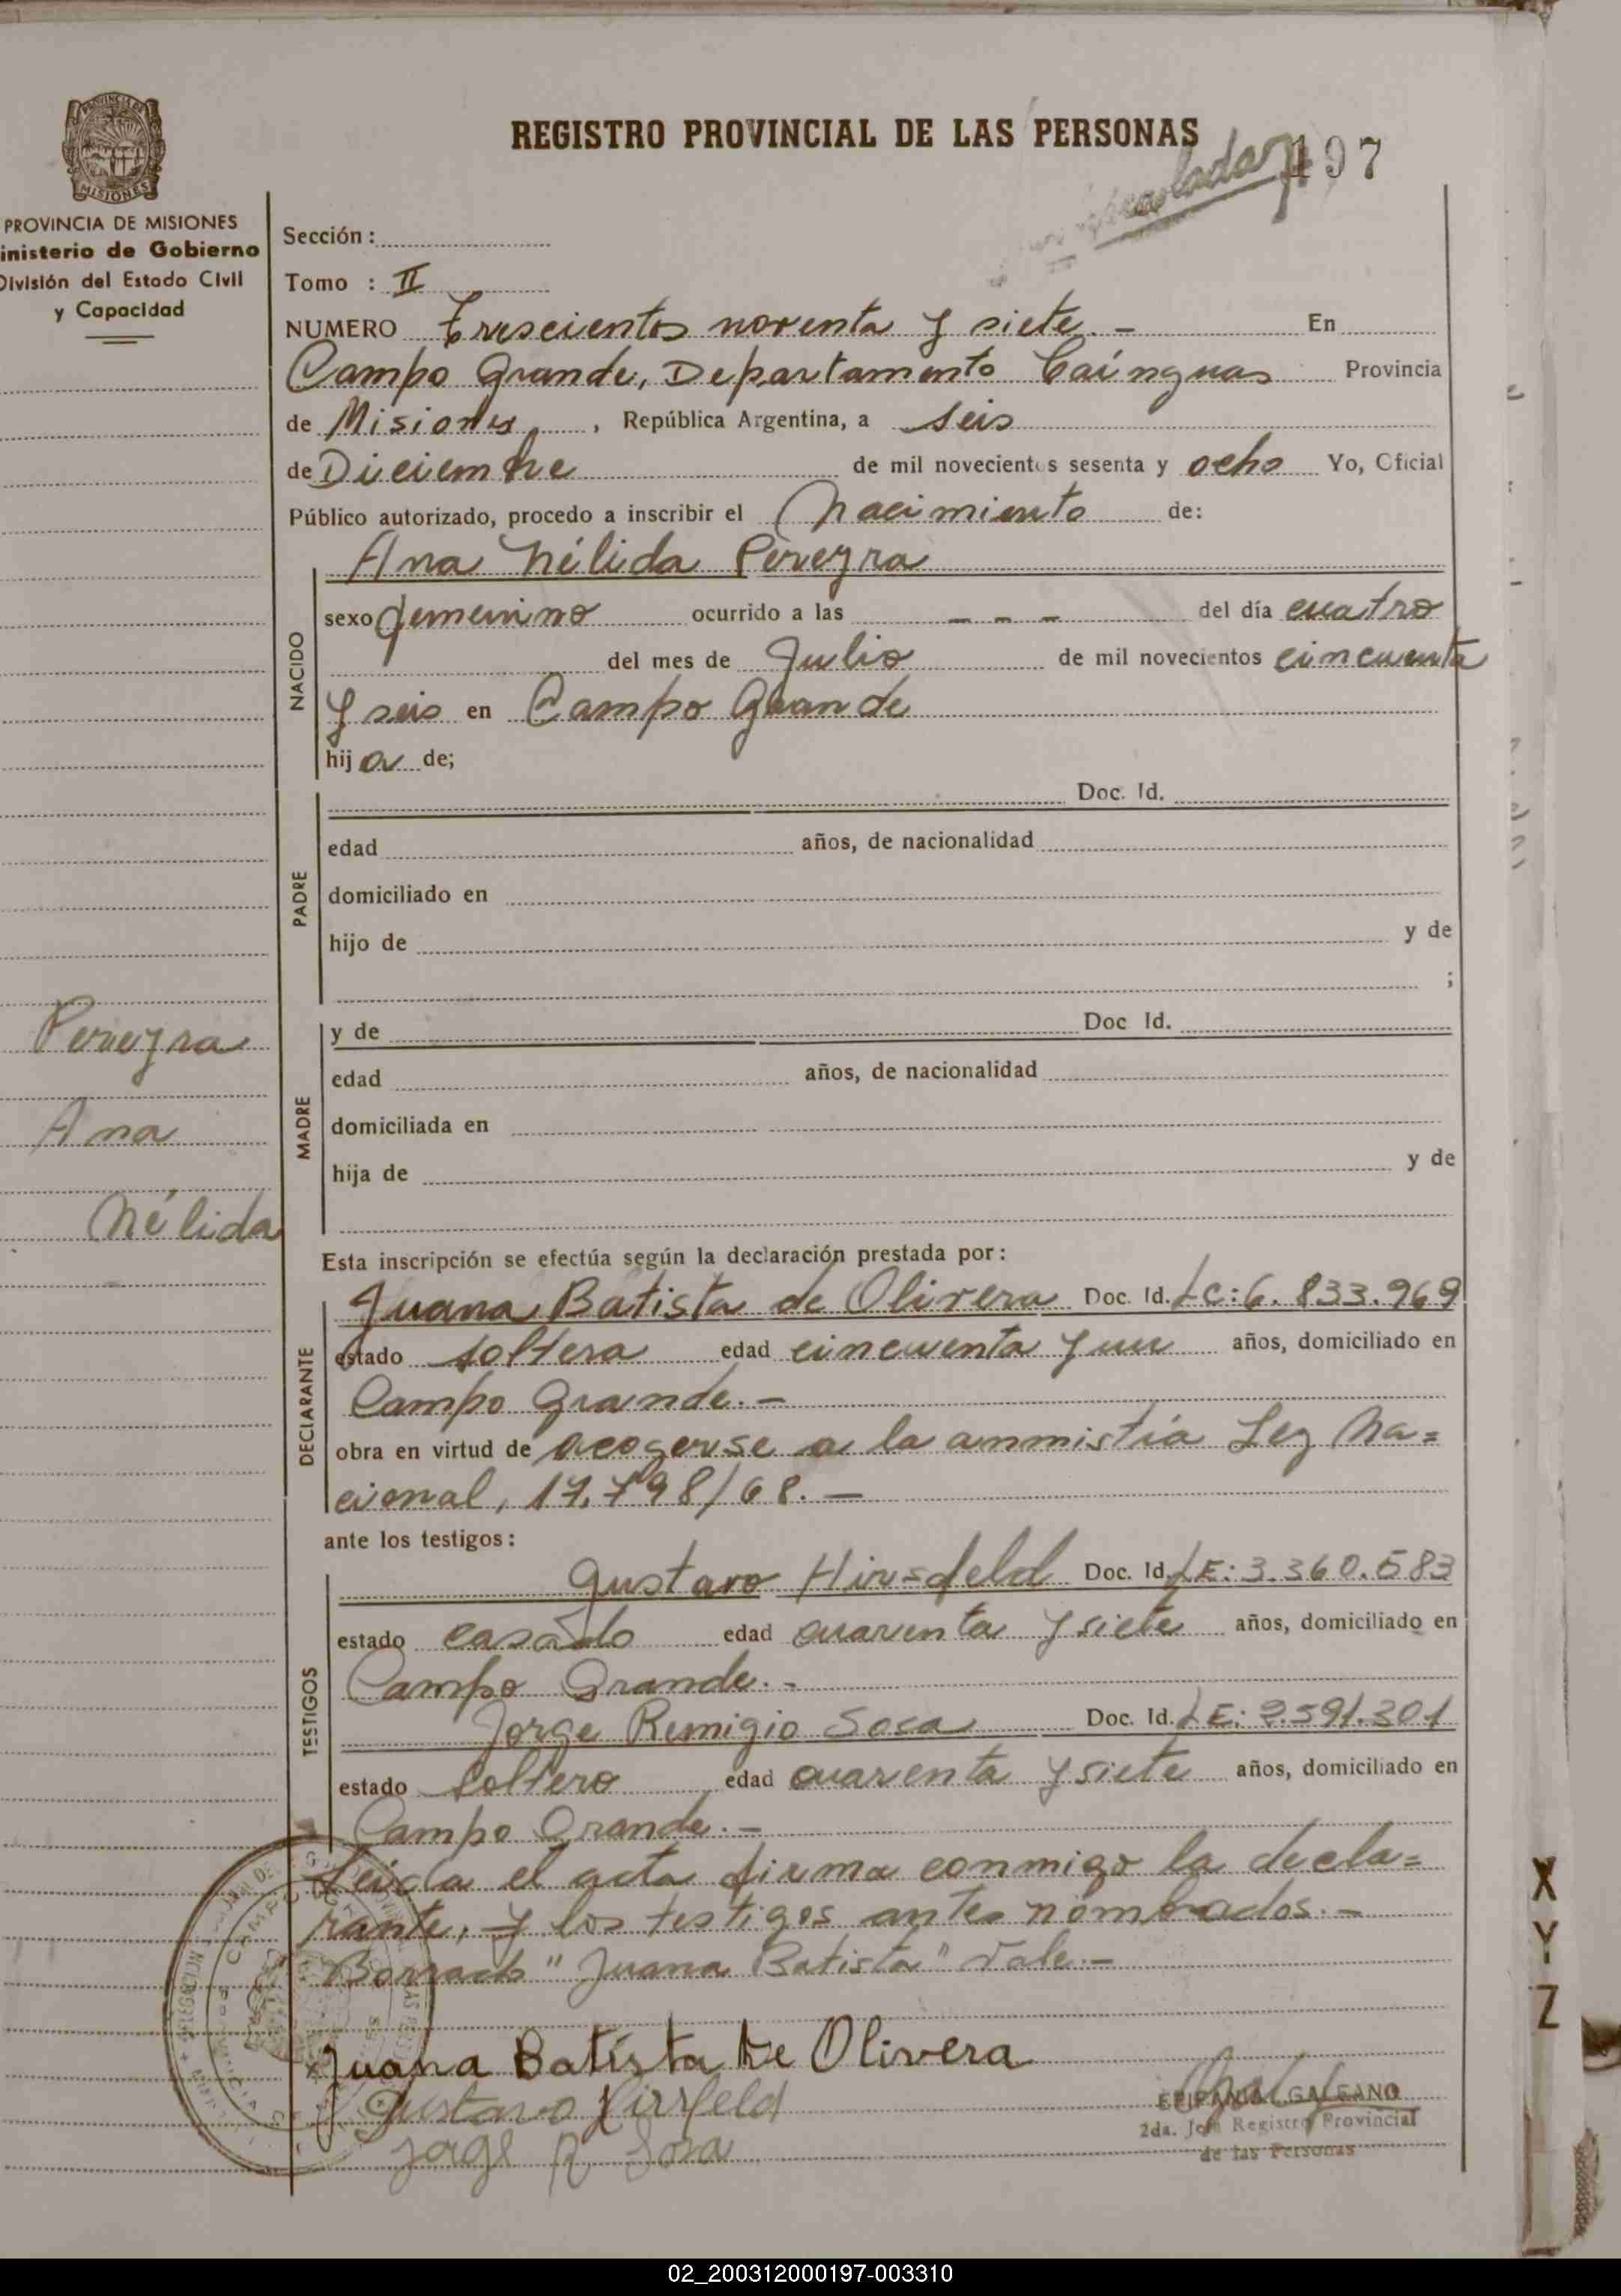 REGISTRO PROVINCIAL DE LAS PERSONAS
197
PROVINCIA DE MISIONES
inisterio de Gobierno
División del Estado Civil
y Capacidad
Sección :
Tomo : II
NUMERO Trescientos noventa y siete. - En
Campo Grande, Departamento Caínguas Provincia
de Misiones , República Argentina, a seis
de Diciembre de mil novecientos sesenta y ocho Yo, Oficial
Público autorizado, procedo a inscribir el Nacimiento de:
NACIDO
Ana Nélida Pereyra
sexo femenino ocurrido a las - - - del día cuatro
del mes de Julio de mil novecientos cincuenta
y seis en Campo Grande
hij a de;
PADRE
Doc. Id.
edad años, de nacionalidad
domiciliado en
hijo de y de
;
Pereyra
Ana
Nélida
MADRE
y de Doc Id.
edad años, de nacionalidad
domiciliada en
hija de y de
Esta inscripción se efectúa según la declaración prestada por :
DECLARANTE
Juana Batista de Olivera Doc. Id. LC: 6. 833.969
estado soltera edad cincuenta y un años, domiciliado en
Campo Grande. -
obra en virtud de acogerse a la ammistía Ley Na=
cional, 17.798/68. -
ante los testigos :
TESTIGOS
Gustavo Hirsfeld Doc. Id. LE: 3.360.583
estado casado edad cuarenta y siete años, domiciliado en
Campo Grande. -
Jorge Remigio Sosa Doc. Id. LE: 2.591.301
estado soltero edad cuarenta y siete años, domiciliado en
Campo Grande. -
Leída el acta firma conmigo la decla=
rante, y los testigos antes nombrados. -
Borrado "Juana Batista" Vale. -
Juana Batista De Olivera
Gustavo Hirsfeld
Jorge R. Sosa
EPIFANIA L. GALEANO
2da. Jefa Registro Provincial
de las Personas
X
Y
Z
02_200312000197-003310